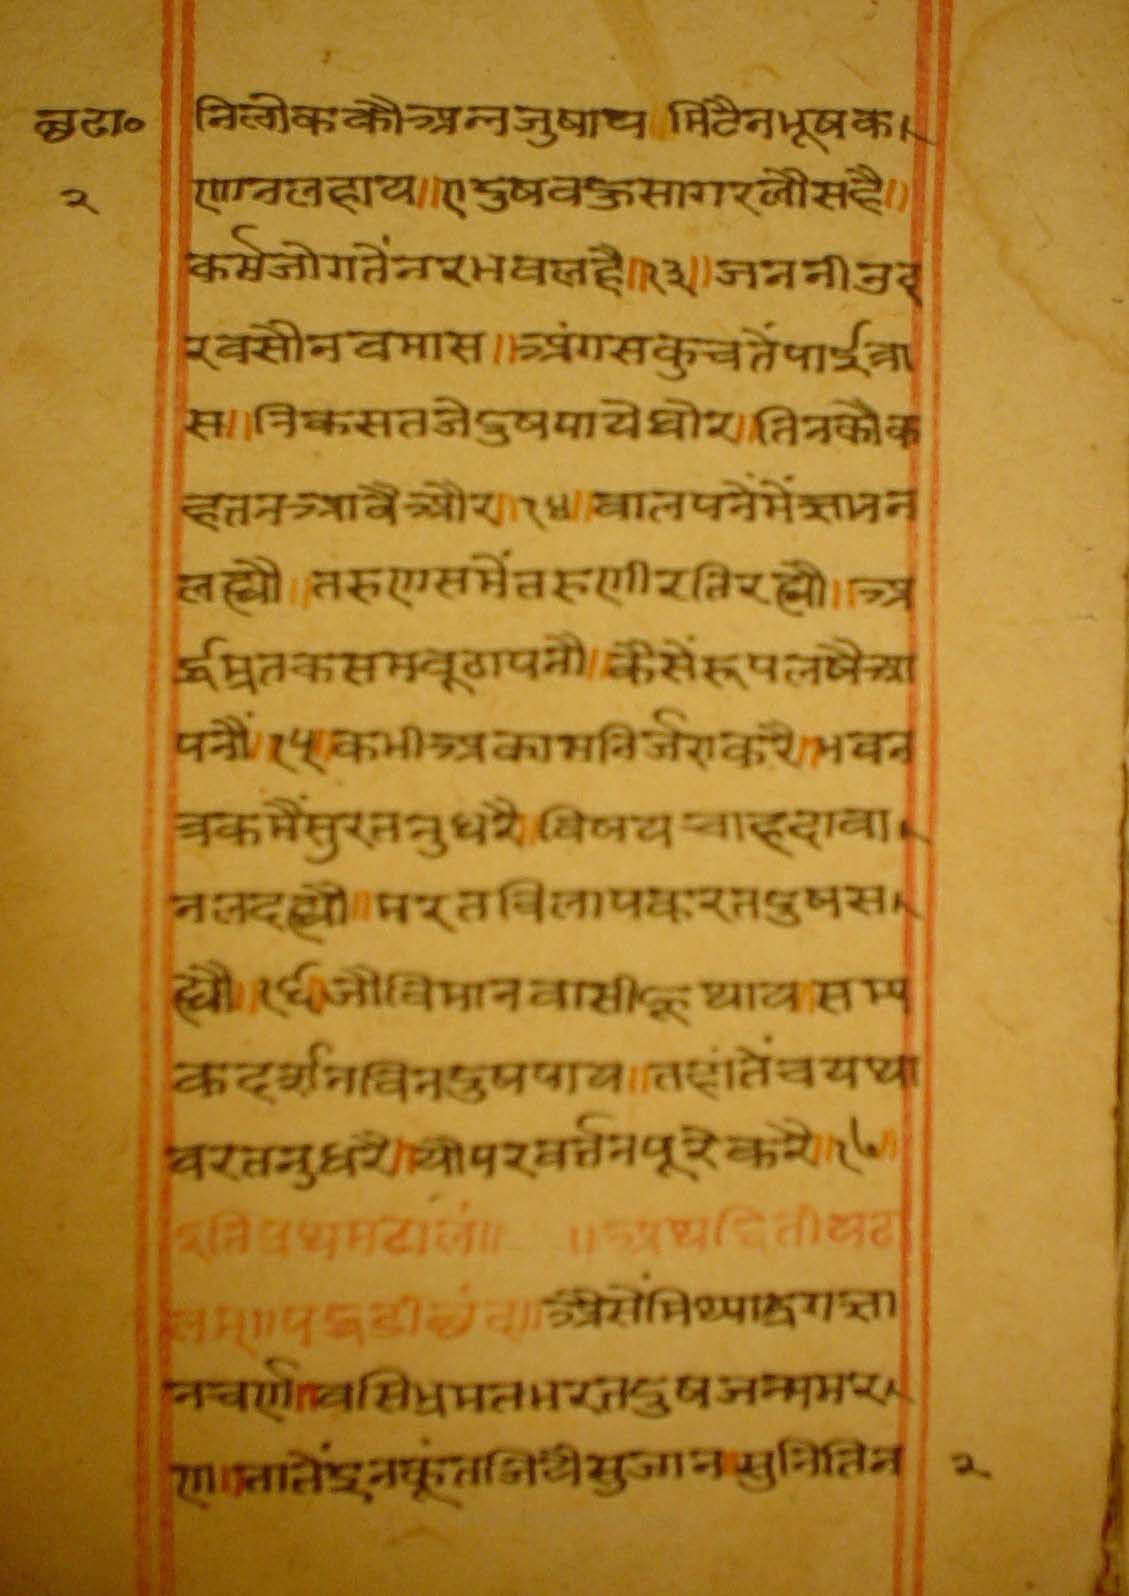 छढा० निलोककौअन्नजुषाय मिटैनभूषक
२ णानलहाय॥ए दुषवऊसागरलौसहै॥
कर्मजोगतैंनरभवलहै॥१३॥जननीउद
रवसौनवमास॥अंगसकुचतैंपाईत्रा
स॥निकसतजेदुषपायेघोर॥तिनकौक
हतनआवैओर॥१४॥वालपनेंमेंज्ञानन
लह्यौ॥तरुणसमैंतरुणीरतिरह्यौ॥अ
र्द्धमृतकसमवूढापनौ॥कैसेंरूपलषैआ
पनौं॥१५॥कभीअकामनिर्जराकरै॥भवन
त्रकमैंसुरतनुधरै॥विषयचाहदावा
नलदह्यौ॥मरतविलापकरतदुषस
ह्यौ॥१६॥जौविमानवासीहूथाय॥सम्य
कदर्शनविनदुषपाय॥तहांतैंचयथा
वरतनुधरै॥यौंपरवर्त्तनपूरेकरै॥१७॥
इतिप्रथमढालं॥ ॥अथद्वितीयढा
लम्॥पद्धडीछंद॥अैसेंमिथ्याद्रगज्ञा
नचर्ण॥वसिभ्रमतभरतदुषजन्ममर
ण॥तातैंइनकूंतजियैसुजान॥सुनितिन २